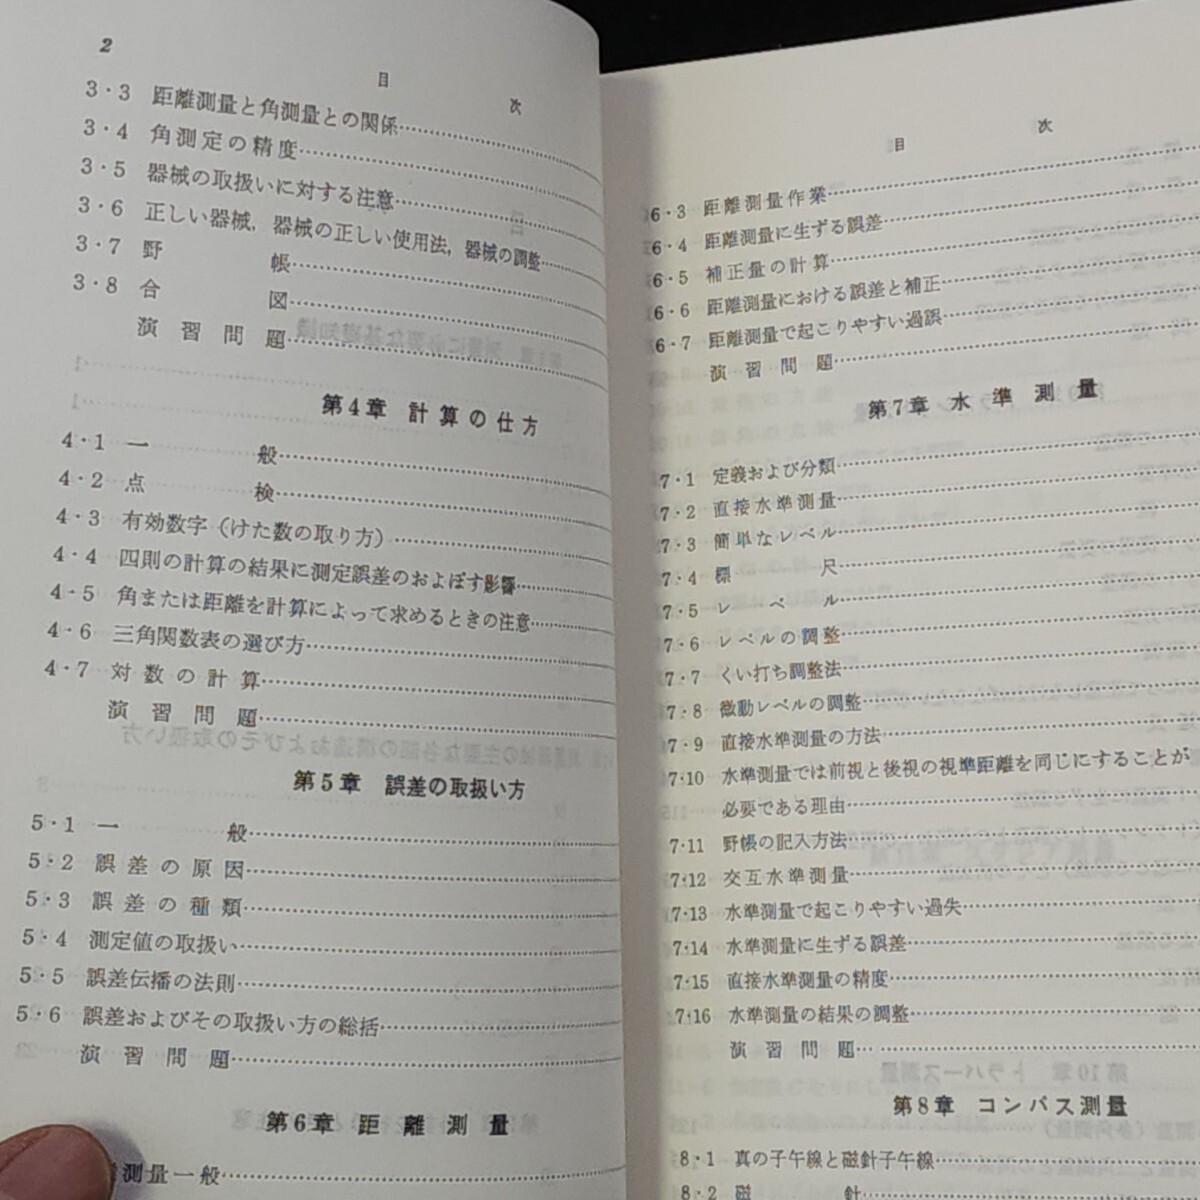 2
目 次
3・3 距離測量と角測量との関係
3・4 角測定の精度
3・5 器械の取扱いに対する注意
3・6 正しい器械，器械の正しい使用法，器械の調整
3・7 野 帳
3・8 合 図
演習問題
第4章 計算の仕方
4・1 一 般
4・2 点 検
4・3 有効数字（けた数の取り方）
4・4 四則の計算の結果に測定誤差のおよぼす影響
4・5 角または距離を計算によって求めるときの注意
4・6 三角関数表の選び方
4・7 対数の計算
演習問題
第5章 誤差の取扱い方
5・1 一 般
5・2 誤差の原因
5・3 誤差の種類
5・4 測定値の取扱い
5・5 誤差伝播の法則
5・6 誤差およびその取扱い方の総括
演習問題
第6章 距離測量
測量一般
目 次
6・3 距離測量作業
6・4 距離測量に生ずる誤差
6・5 補正量の計算
6・6 距離測量における誤差と補正
6・7 距離測量で起こりやすい過誤
演習問題
第7章 水準測量
7・1 定義および分類
7・2 直接水準測量
7・3 簡単なレベル
7・4 標 尺
7・5 レベル
7・6 レベルの調整
7・7 くい打ち調整法
7・8 微動レベルの調整
7・9 直接水準測量の方法
7・10 水準測量では前視と後視の視準距離を同じにすることが
必要である理由
7・11 野帳の記入方法
7・12 交互水準測量
7・13 水準測量で起こりやすい過失
7・14 水準測量に生ずる誤差
7・15 直接水準測量の精度
7・16 水準測量の結果の調整
演習問題
第8章 コンパス測量
8・1 真の子午線と磁針子午線
8・2 磁 針